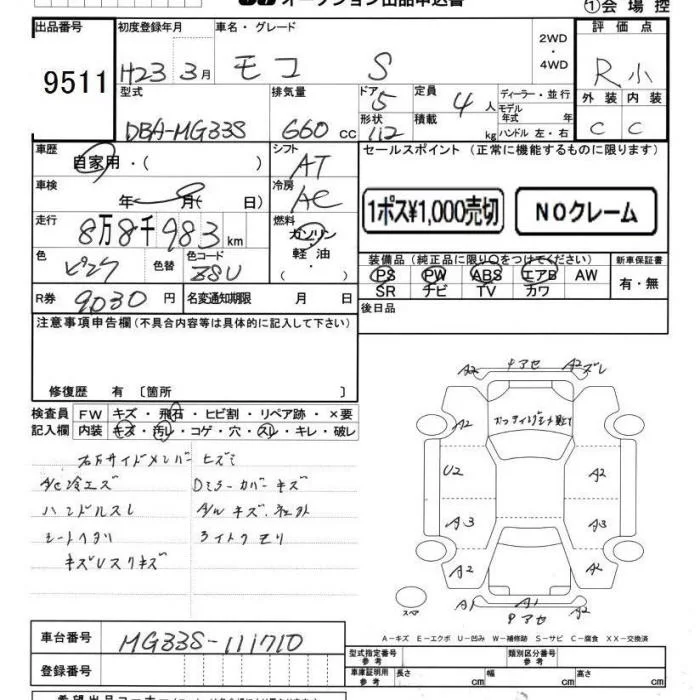 オークション出品申込書
①会場控
出品番号 初度登録年月 車名・グレード 2WD・4WD 評価点
9511 H23 3月 モコ S R小
型式 排気量 ドア 定員 ディーラー・並行 外装 内装
形状 積載 モデル年式 年式
DBA-MG33S 660cc 5 4人 C C
112 kg ハンドル 左・右
車歴 シフト セールスポイント（正常に機能するものに限ります）
自家用・( ) AT
車検 冷房
年 月( 日) AC 1ポス¥1,000売切 NOクレーム
走行 燃料
8万8千983km ガソリン・軽油・( )
色 色替 色コード 装備品（純正品に限り○をつけてください） 新車保証書
ピンク ZSU PS PW ABS エアB AW 有・無
SR ナビ TV カワ
R券 9030円 名変通知期限 月 日 後日品
注意事項申告欄（不具合内容等は具体的に記入して下さい）
修復歴 有〔箇所 〕
検査員 FW キズ・飛石・ヒビ割・リペア跡・×要
記入欄 内装 キズ・汚レ・コゲ・穴・スレ・キレ・破レ
右Fサイドメンバーヒズミ
A/C冷エズ Dミラーカバーキズ
ハンドルスレ A/Wキズ
シートヘタリ ライトクモリ
A2 チアセ A2 ズレ
A2
U2 A2
A3 A3
A2 A2
A1 A1 A2
チアセ
スペア
A－キズ E－エクボ U－凹み W－補修跡 S－サビ C－腐食 XX－交換済
車台番号 MG33S-111710
型式指定番号 参考 類別区分番号 参考
登録番号
車庫証明用 参考 長さ cm 幅 cm 高さ cm